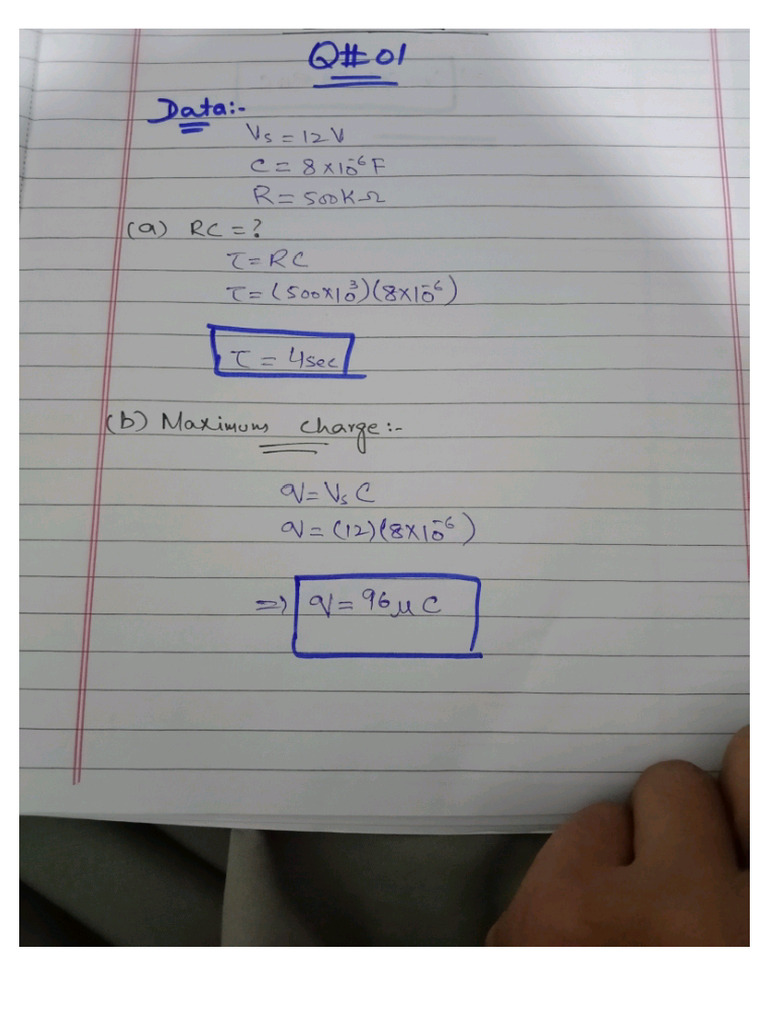 Q#01
Data:-
Vs = 12V
C = 8×10⁻⁶F
R = 500KΩ
(a) RC = ?
τ = RC
τ = (500×10³)(8×10⁻⁶)
τ = 4sec
(b) Maximum charge:-
q = VsC
q = (12)(8×10⁻⁶)
⇒ q = 96μC